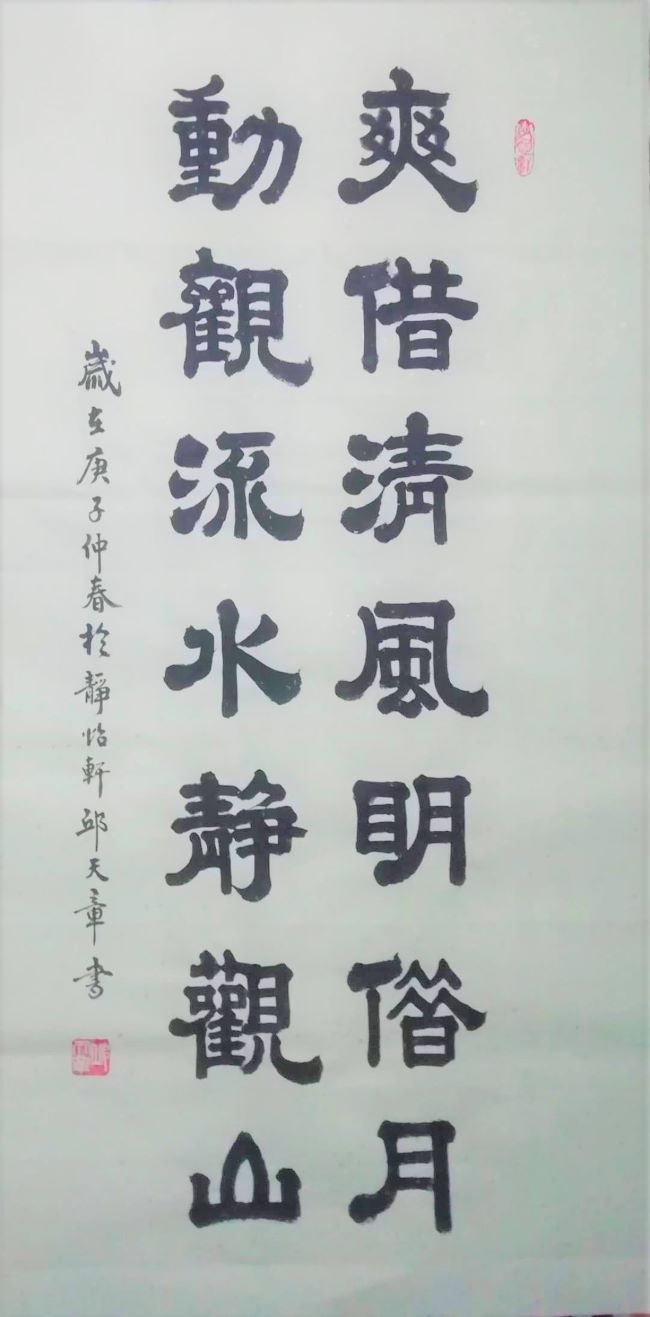 爽借清風明借月
動觀流水靜觀山
歲在庚子仲春於靜怡軒邱天章書